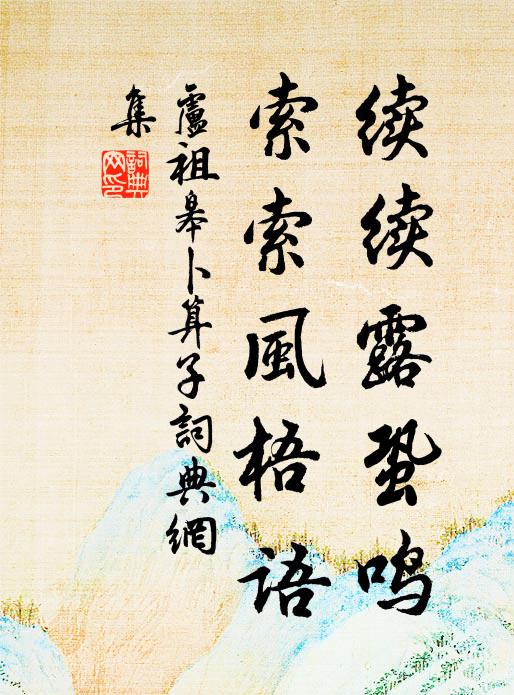 续续露蛩鸣
索索風梧语
盧祖皋卜算子詞典網
集
詞典
网印